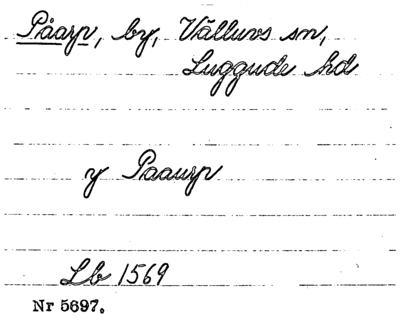 Påarp, by, Välluvs sn,
Luggude hd
y Paaurp
Lb 1569
Nr 5697.